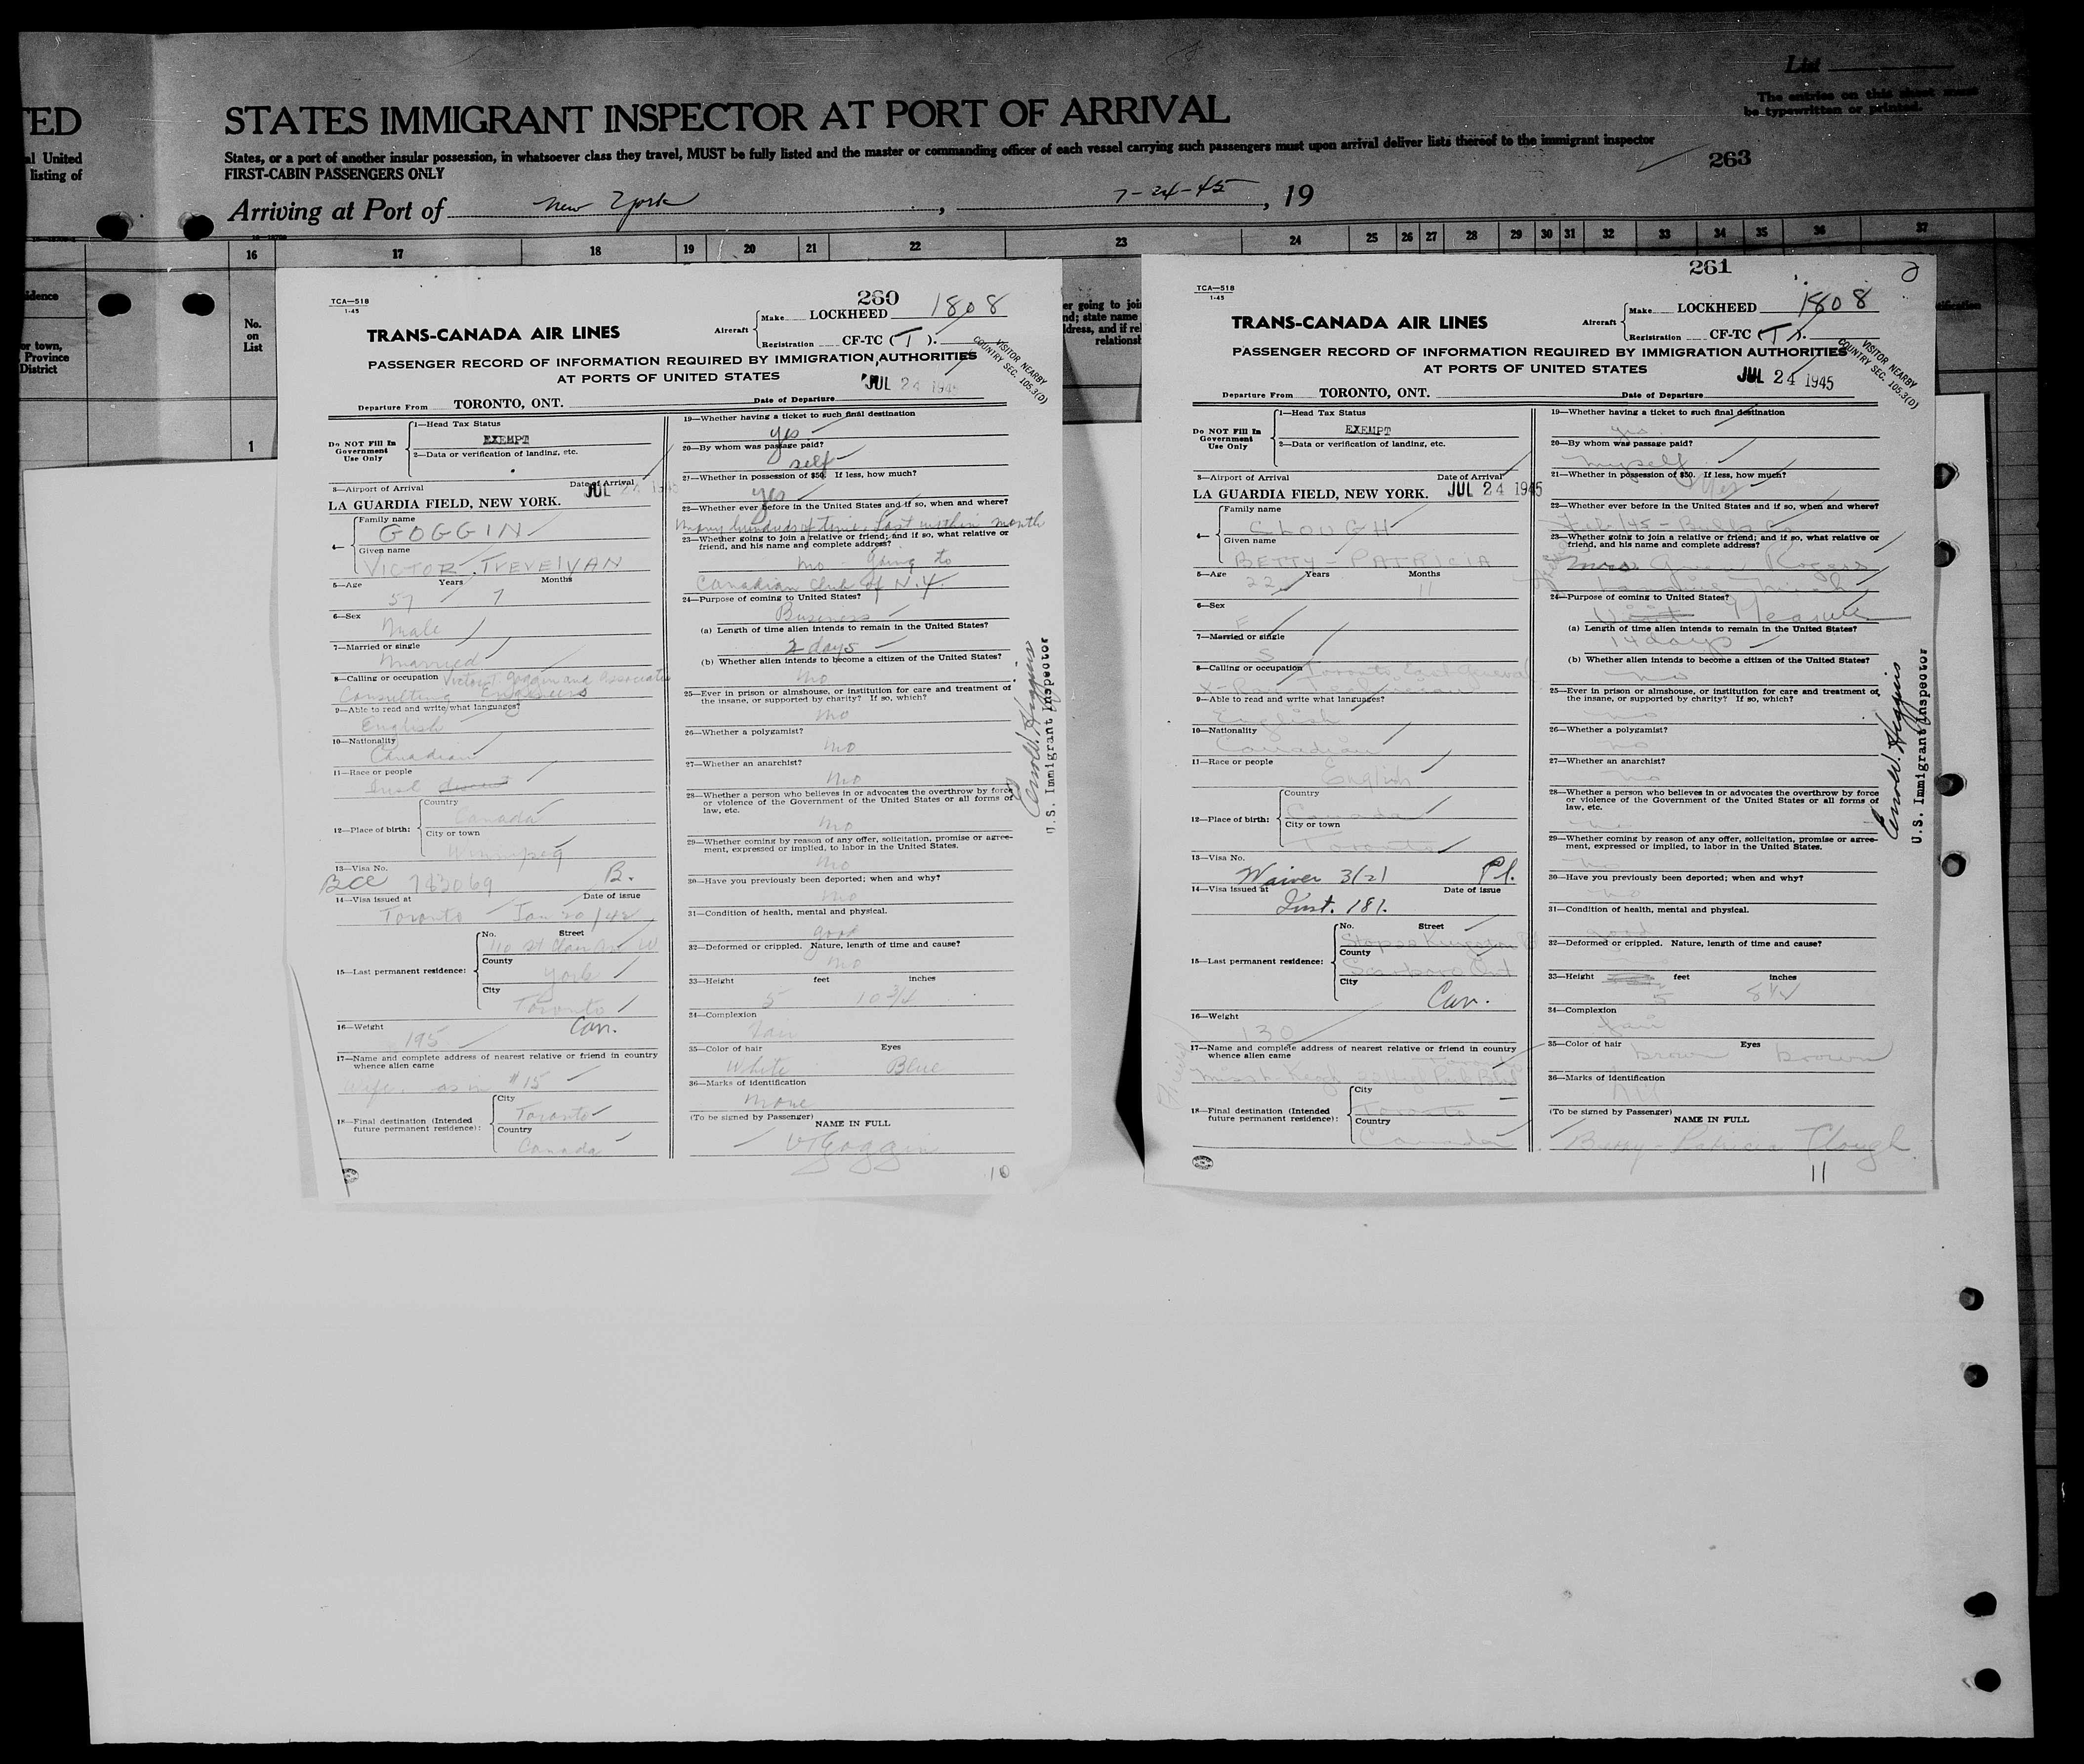 List
The entries on this sheet must
be typewritten or printed.
TED
STATES IMMIGRANT INSPECTOR AT PORT OF ARRIVAL
al United
listing of
States, or a port of another insular possession, in whatsoever class they travel, MUST be fully listed and the master or commanding officer of each vessel carrying such passengers must upon arrival deliver lists thereof to the immigrant inspector
FIRST-CABIN PASSENGERS ONLY
263
Arriving at Port of New York, 7-24-45, 19
16 17 18 19 20 21 22 23 24 25 26 27 28 29 30 31 32 33 34 35 36 37
idence
or town,
Province
District
No.
on
List
1
er going to joi
nd; state name
ldress, and if re
relations
TCA—518
1-45
260
1808
Aircraft
Make LOCKHEED
Registration CF-TC (T).
TRANS-CANADA AIR LINES
PASSENGER RECORD OF INFORMATION REQUIRED BY IMMIGRATION AUTHORITIES
AT PORTS OF UNITED STATES
VISITOR NEARBY
COUNTRY SEC. 105.3(D)
JUL 24 1945
Departure From TORONTO, ONT. Date of Departure
Do NOT Fill In
Government
Use Only
1—Head Tax Status
EXEMPT
2—Data or verification of landing, etc.
3—Airport of Arrival Date of Arrival
LA GUARDIA FIELD, NEW YORK. JUL 24 1945
4— Family name
GOGGIN
Given name
VICTOR TREVELYAN
5—Age Years Months
57 7
6—Sex
Male
7—Married or single
Married
8—Calling or occupation Victor T. Goggin and Associates
Consulting Engineers
9—Able to read and write what languages?
English
10—Nationality
Canadian
11—Race or people
12—Place of birth:
Country
Canada
City or town
Winnipeg
13—Visa No.
BCC 783069 B.
14—Visa issued at Date of issue
Toronto Jan 20/42
15—Last permanent residence:
No. Street
110 St Clair Ave W
County
York
City
Toronto
Can.
16—Weight
195
17—Name and complete address of nearest relative or friend in country
whence alien came
Wife, as in #15
18—Final destination (Intended
future permanent residence):
City
Toronto
Country
Canada
19—Whether having a ticket to such final destination
yes
20—By whom was passage paid?
self
21—Whether in possession of $50. If less, how much?
yes
22—Whether ever before in the United States and if so, when and where?
Many hundreds of times. Last within month
23—Whether going to join a relative or friend; and if so, what relative or
friend, and his name and complete address?
No going to
Canadian Club of N.Y.
24—Purpose of coming to United States?
Business
(a) Length of time alien intends to remain in the United States?
2 days
(b) Whether alien intends to become a citizen of the United States?
no
25—Ever in prison or almshouse, or institution for care and treatment of
the insane, or supported by charity? If so, which?
no
26—Whether a polygamist?
no
27—Whether an anarchist?
no
28—Whether a person who believes in or advocates the overthrow by force
or violence of the Government of the United States or all forms of
law, etc.
no
29—Whether coming by reason of any offer, solicitation, promise or agree-
ment, expressed or implied, to labor in the United States.
no
30—Have you previously been deported; when and why?
no
31—Condition of health, mental and physical.
good
32—Deformed or crippled. Nature, length of time and cause?
no
33—Height feet inches
5 10 3/4
34—Complexion
Fair
35—Color of hair Eyes
White Blue
36—Marks of identification
None
(To be signed by Passenger)
NAME IN FULL
VT Goggin
10
U.S. Immigrant Inspector
TCA—518
1-45
261
1808
Aircraft
Make LOCKHEED
Registration CF-TC (T).
TRANS-CANADA AIR LINES
PASSENGER RECORD OF INFORMATION REQUIRED BY IMMIGRATION AUTHORITIES
AT PORTS OF UNITED STATES
VISITOR NEARBY
COUNTRY SEC. 105.3(D)
JUL 24 1945
Departure From TORONTO, ONT. Date of Departure
Do NOT Fill In
Government
Use Only
1—Head Tax Status
EXEMPT
2—Data or verification of landing, etc.
3—Airport of Arrival Date of Arrival
LA GUARDIA FIELD, NEW YORK. JUL 24 1945
4— Family name
CLOUGH
Given name
BETTY-PATRICIA
5—Age Years Months
22 11
6—Sex
F
7—Married or single
S
8—Calling or occupation Toronto East General
X-Ray
9—Able to read and write what languages?
English
10—Nationality
Canadian
11—Race or people
English
12—Place of birth:
Country
Canada
City or town
Toronto
13—Visa No.
Waiver 3(2) Pl.
14—Visa issued at Date of issue
Inst. 181.
15—Last permanent residence:
No. Street
Stop 22 Kingston Rd
County
Scarboro Ont
City
Can.
16—Weight
130
17—Name and complete address of nearest relative or friend in country
whence alien came
18—Final destination (Intended
future permanent residence):
City
Toronto
Country
Canada
19—Whether having a ticket to such final destination
yes
20—By whom was passage paid?
myself
21—Whether in possession of $50. If less, how much?
Yes
22—Whether ever before in the United States and if so, when and where?
Feb/45 -
23—Whether going to join a relative or friend; and if so, what relative or
friend, and his name and complete address?
Mrs. Rogers
Mich
24—Purpose of coming to United States?
Visit Pleasure
(a) Length of time alien intends to remain in the United States?
14 days
(b) Whether alien intends to become a citizen of the United States?
no
25—Ever in prison or almshouse, or institution for care and treatment of
the insane, or supported by charity? If so, which?
no
26—Whether a polygamist?
no
27—Whether an anarchist?
no
28—Whether a person who believes in or advocates the overthrow by force
or violence of the Government of the United States or all forms of
law, etc.
no
29—Whether coming by reason of any offer, solicitation, promise or agree-
ment, expressed or implied, to labor in the United States.
no
30—Have you previously been deported; when and why?
no
31—Condition of health, mental and physical.
good
32—Deformed or crippled. Nature, length of time and cause?
33—Height feet inches
5 8 1/2
34—Complexion
fair
35—Color of hair Eyes
brown brown
36—Marks of identification
Nil
(To be signed by Passenger)
NAME IN FULL
Betty-Patricia Clough
11
U.S. Immigrant Inspector